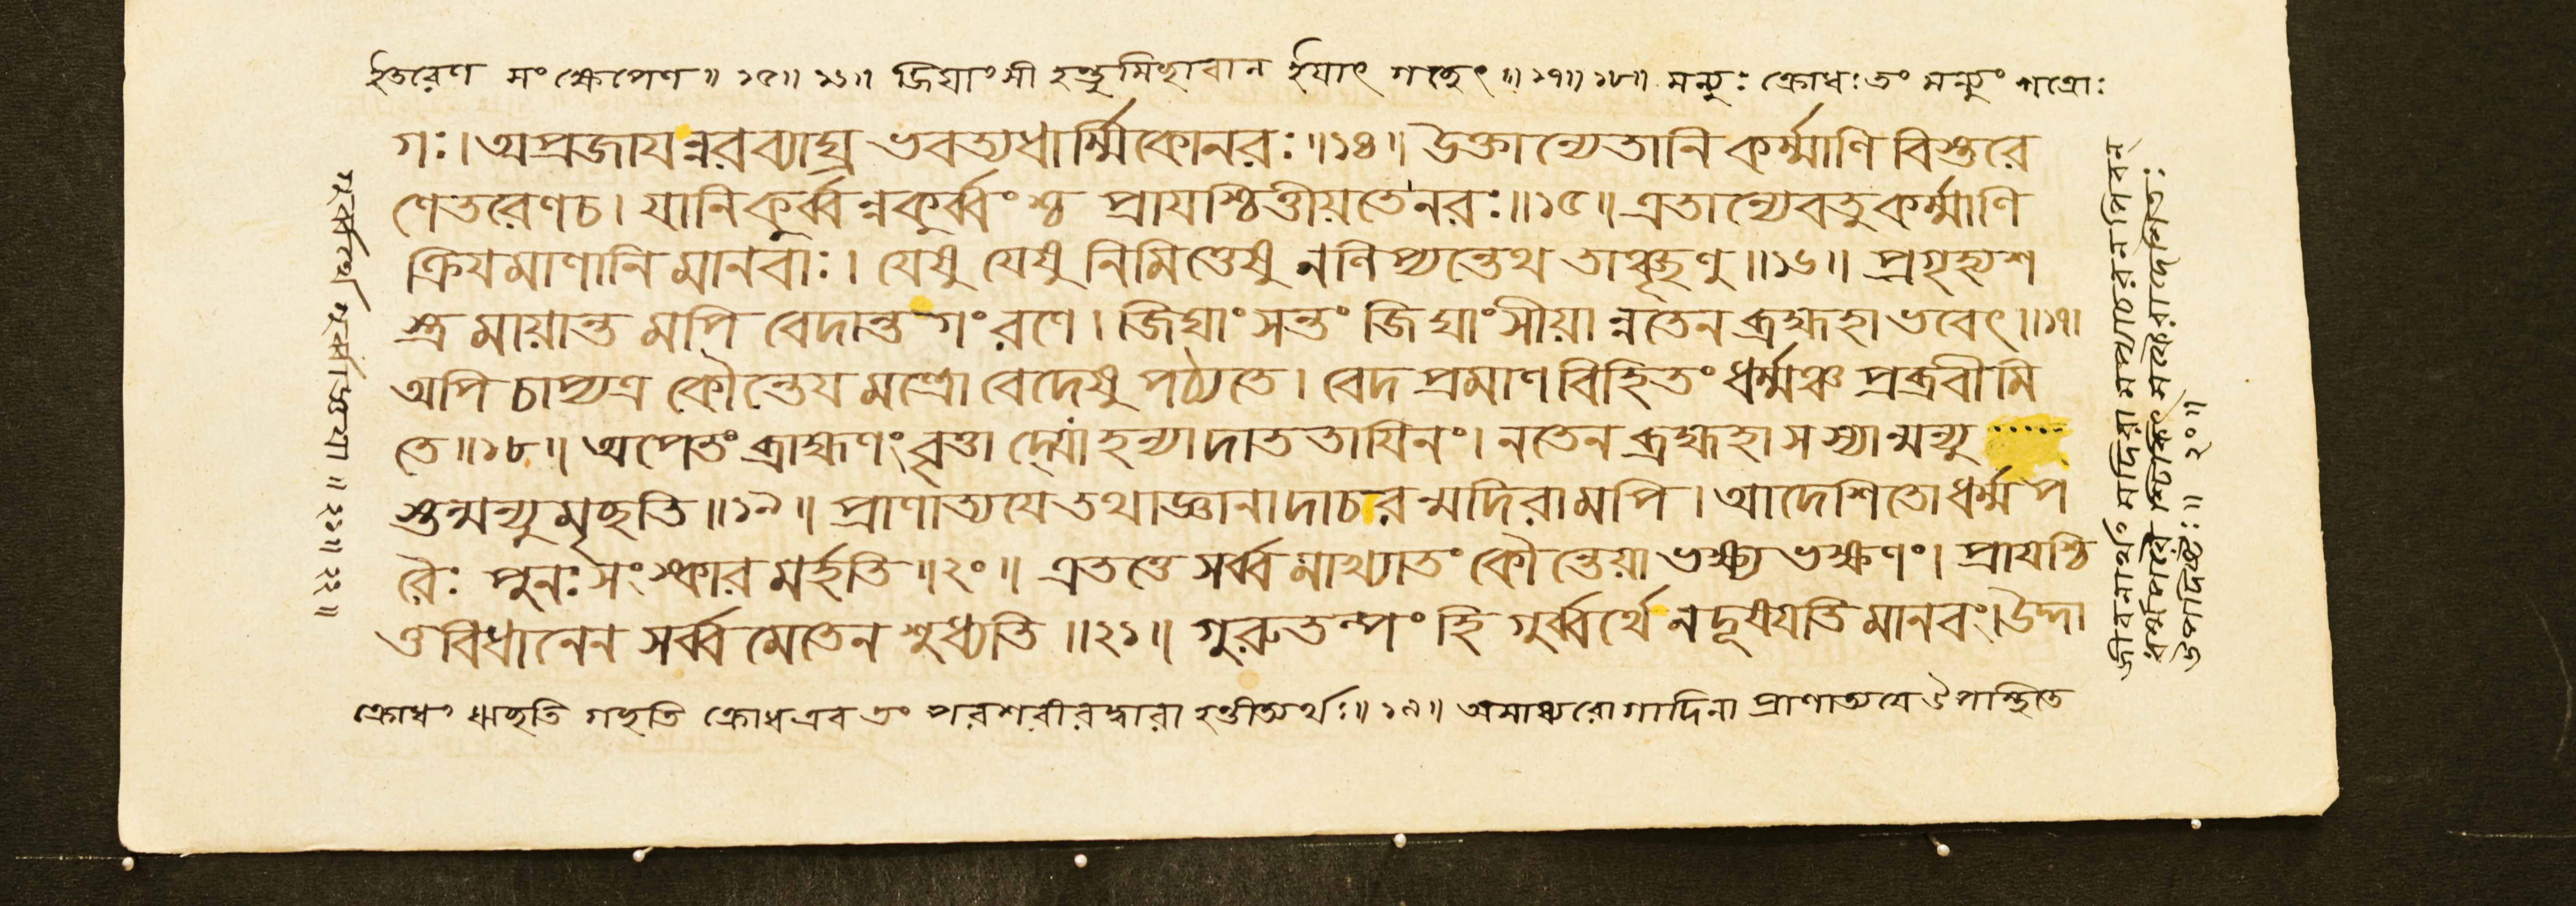 ইতরেণ সংক্ষেপেণ॥ ১৫॥ ১৬॥ জিঘাংসী হন্তুমিচ্ছাবান ইযাৎ গচ্ছেৎ॥ ১৭॥ ১৮॥ মন্যুঃ ক্রোধঃ তং মন্যুং শত্রোঃ
গঃ। অপ্রজাযন্নরব্যাঘ্র ভবত্যধার্ম্মিকোনরঃ॥১৪॥ উক্তান্যেতানি কর্ম্মাণি বিস্তরে
ণেতরেণচ। যানিকুর্ব্বন্নকুর্ব্বংশ্চ প্রাযশ্চিত্তীয়তেনরঃ॥১৫॥ এতান্যেবতুকর্ম্মাণি
ক্রিযমাণানি মানবাঃ। যেষু যেষু নিমিত্তেষু নলিপ্যন্তেথ তাঞ্ছৃণু॥১৬॥ প্রগৃহ্যশ
স্ত্রমায়ান্তমপি বেদান্তগং রণে। জিঘাংসন্তং জিঘাংসীয়ান্নতেন ব্রহ্মহা ভবেৎ॥১৭।
অপি চাপ্যত্র কৌন্তেয মন্ত্রো বেদেষু পঠ্যতে। বেদপ্রমাণবিহিতং ধর্ম্মঞ্চ প্রব্রবীমি
তে॥১৮॥ অপেতং ব্রাহ্মণং বৃত্তাদ্যো হন্যাদাততাযিনং। নতেন ব্রহ্মহাসস্যান্মন্যু
স্তন্মন্যুমৃচ্ছতি॥১৯॥ প্রাণাত্যযে তথাজ্ঞানাদাচরন্মদিরামপি। আদেশিতোধর্ম্মপ
রৈঃ পুনঃসংস্কারমর্হতি॥২০॥ এতত্তে সর্ব্বমাখ্যাতং কৌন্তেয়াভক্ষ্যভক্ষণং। প্রাযশ্চি
ত্তবিধানেন সর্ব্বমেতেন শুধ্যতি॥২১॥ গুরুতল্পং হি গুর্ব্বর্থে নদূষযতি মানবং। উদ্দা
ক্রোধং ঋচ্ছতি গচ্ছতি ক্রোধএব তং পরশরীরদ্বারা হন্তীত্যর্থঃ॥১৯॥ অসাধ্যরোগাদিনা প্রাণাত্যযে উপস্থিতে
জীবনার্থং মদিরা
ধর্ম্মপরৈঃ
উপদিষ্টঃ॥ ২০॥
॥ ২১॥ ২২॥